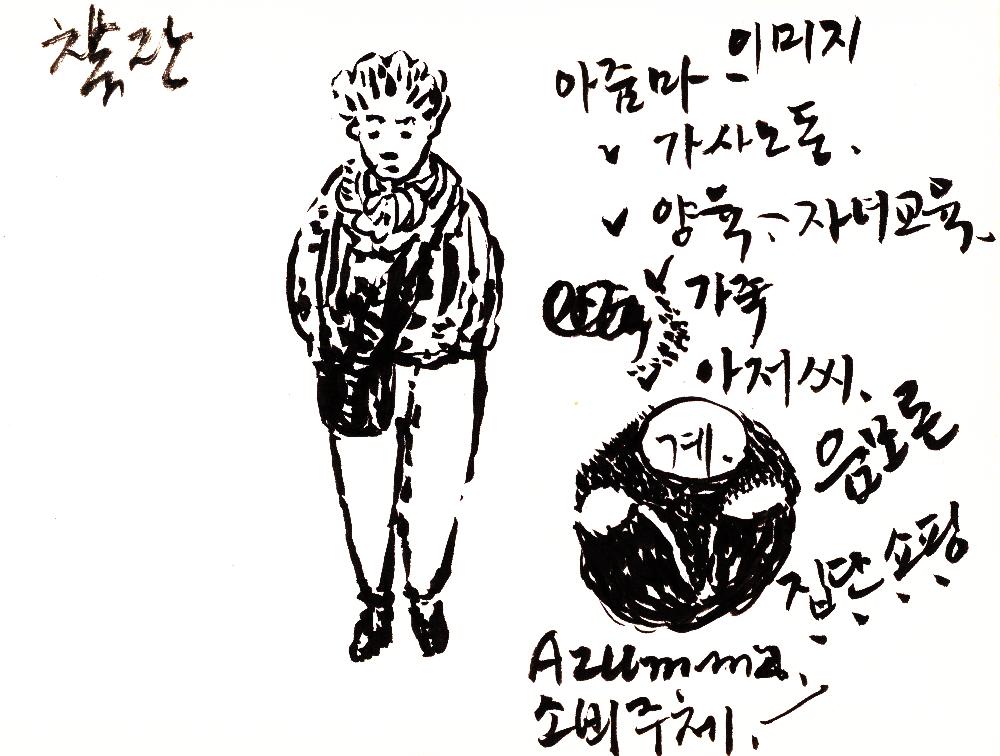 착잔
이미지
아줌마
가사노동.
양육, 자녀교육.
가족
아저씨.
계.
음모론
집단쇼핑
Azumma.
소비주체.